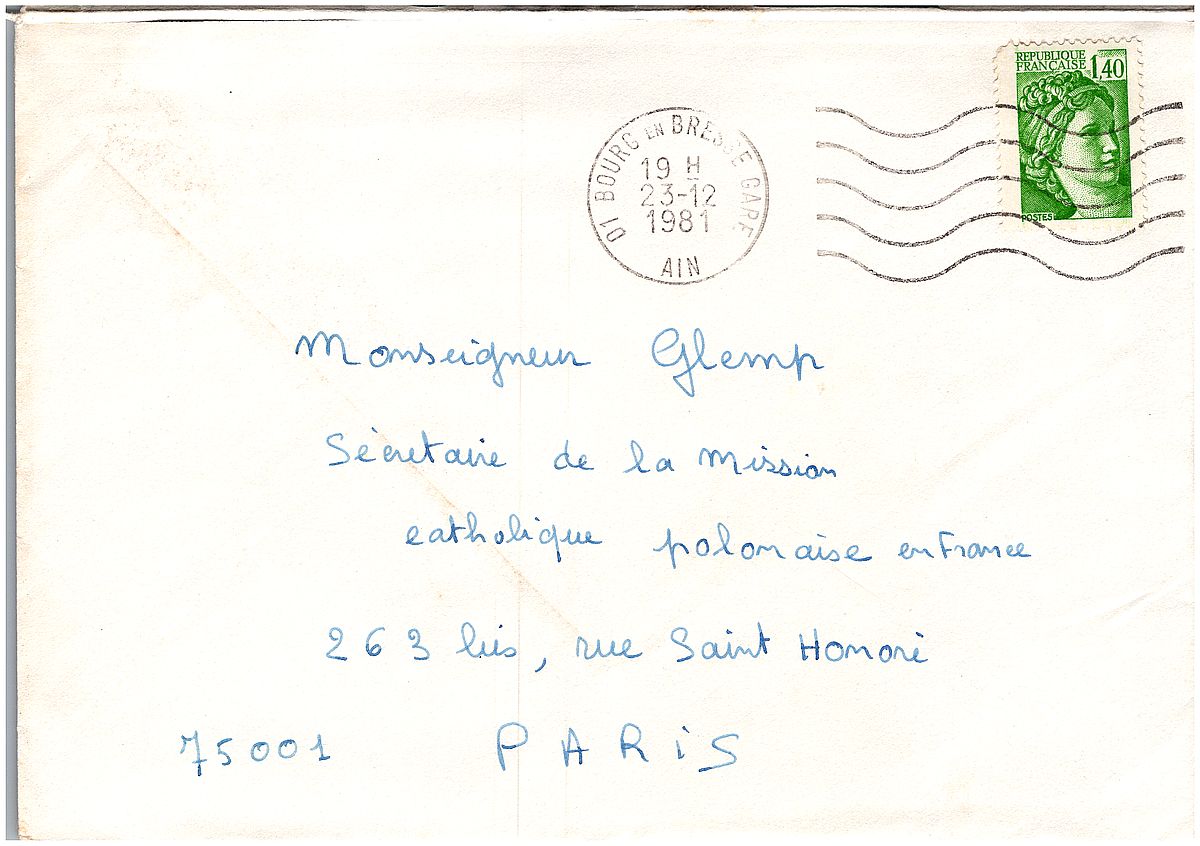 REPUBLIQUE
FRANÇAISE 1,40
POSTES
01 BOURG EN BRESSE GARE
19 H
23-12
1981
AIN
Monseigneur Glemp
Sécretaire de la Mission
catholique polonaise en France
263 bis, rue Saint Honoré
75001 PARIS